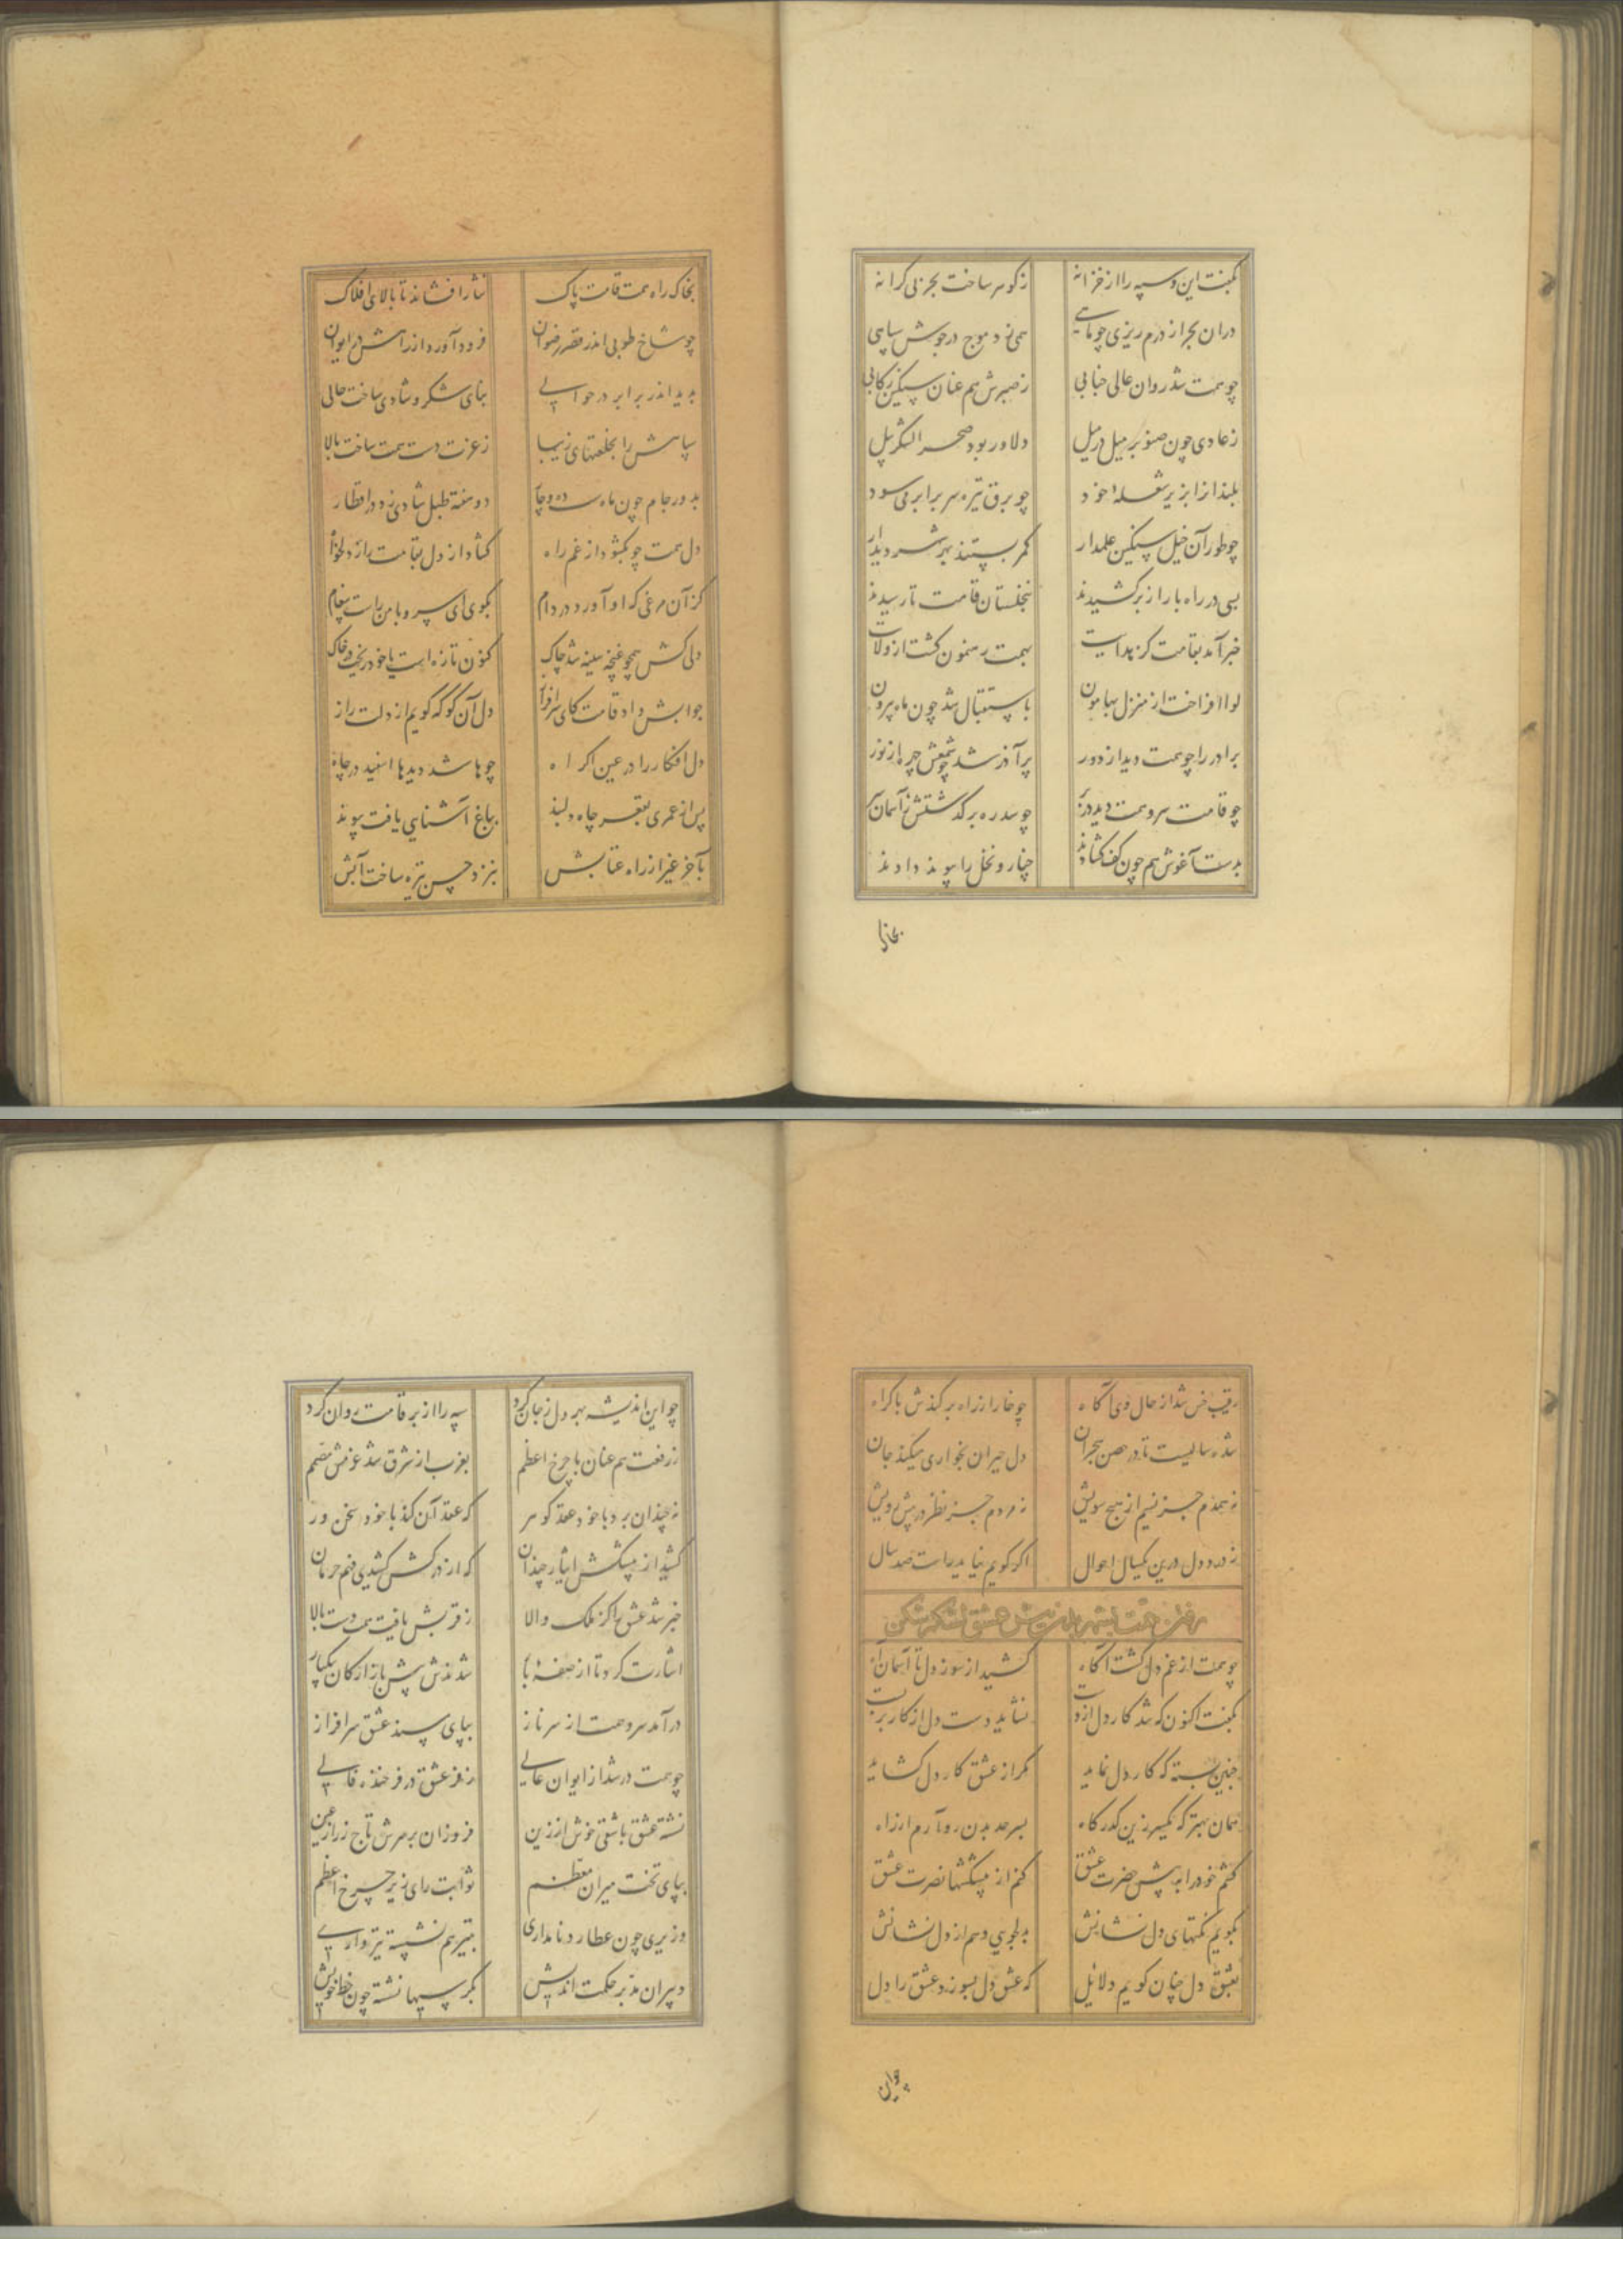 بگفت این و سپه را از خزانه
ز گوهر ساخت بحر بی کرانه
دران بحر از درم ریزی چو ماهی
همی زد موج در جوش سپاهی
چو همت شد روان عالی جنابی
ز صبرش هم عنان سنگین رکابی
ز عادی چون صنوبر میل در میل
دلاور بود صحرا لشکر پیل
بلند از ابر زیر شعله خود
چو برق تیره سر بر ابر می سود
چو طور آن خیل سنگین علمدار
کمر بستند بهر دیدار
بسی در راه بار از بر کشیدند
بنخلستان قامت تا رسیدند
خبر آمد بقامت کز هدایت
بهمت رهنمون کشت از ولایت
لوا افراخت از منزل بهامون
باستقبال شد چون ماه بیرون
برادر را چو همت دید از دور
پر آذر شد چو شمعش چهره از نور
چو قامت سرو همت دید در بر
چو سدره بر گذشتش ز آسمان سر
بدست آغوش هم چون کف کشادند
چنار و نخل را پیوند دادند
بخاک
بخاک راه همت قامت پاک
نثار افشاند تا بالای افلاک
چو شاخ طوبی اندر قصر رضوان
فرود آورد از راهش در ایوان
بدید اندر برابر در حوالی
بنای شکر و شادی ساخت حالی
سپاهش را بخلعتهای زیبا
ز عزت دست همت ساخت بالا
بدور جام چون ماه ده و چار
دو هفته طبل شادی زد در اقطار
دل همت چو بگشود از غم راه
کشاد از دل بقامت راز دلخواه
کز آن مرغی که او آورد در دام
بگوی ای سرو با من راست پیغام
دلی کش همچو غنچه سینه شد چاک
کنون تازه است یا خود ریخت در خاک
جوابش داد قامت کای سرافراز
دل آن کو که گویم از دلت راز
دل افکار را در عین اکراه
چو ها شد دیدها اسفید در چاه
پس از عمری بقعر چاه دلبند
بباغ آشنایی یافت پیوند
بآخر غیر از راه عتابش
بنزد حسن تیره ساخت آبش
رقیب خس شد از حال وی آگاه
چو خار از راه بر کندش باکراه
شده سالیست تا در حصن هجران
دل حیران بخواری میکند جان
نه همدم جز نسیم از هیچ سویش
نه مردم جز نظر در پیش رویش
ز درد دل درین یکسال احوال
اگر گویم نیاید راست صد سال
رفتن همت بشهر بدن پیش عشق لشکرشکن
چو همت از غم دل گشت آگاه
کشید از سوز دل تا آسمان آه
بگفت اکنون که شد کار دل از دست
نشاید دست دل از کار بر بست
چنین بسته که کار دل نماید
مگر از عشق کار دل کشاید
همان بهتر که یکسر زین گذرگاه
بسرحد بدن رو آرم از راه
کشم خود را به پیش حضرت عشق
کنم از پیشکشها نصرت عشق
بگویم نکتهای دل نشانش
بدلجویی دهم از دل نشانش
بعشق دل چنان گویم دلایل
که عشق دل بسوزد عشق را دل
چو این
چو این اندیشه بهر دل ز جان کرد
سپه را از بر قامت روان کرد
ز رفعت هم عنان با چرخ اعظم
بغرب از شرق شد عزمش مصمم
نه چندان برد با خود عقد گوهر
که عقد آن کند با خود سخن ور
کشید از پیشکش ایثار چندان
که از درکش کشیدی فهم حرمان
خبر شد عشق را کز ملک والا
ز قربش یافت همت دست بالا
اشارت کرد تا از صفه بار
شدندش پیش باز ارکان بیکبار
درآمد سرو همت از سر ناز
بپای مسند عشق سرافراز
چو همت در شد از ایوان عالی
ز فر عشق در فرخنده فالی
نشسته عشق باشقی خوش آرزین
فروزان بر سرش تاج زر از عین
بپای تخت میران معظم
ثوابت رای زیر چرخ اعظم
وزیری چون عطارد نامداری
بتیرهم نشسته تیزواری
دبیران مدبر حکمت اندیش
بکرسیها نشسته چون خط خویش